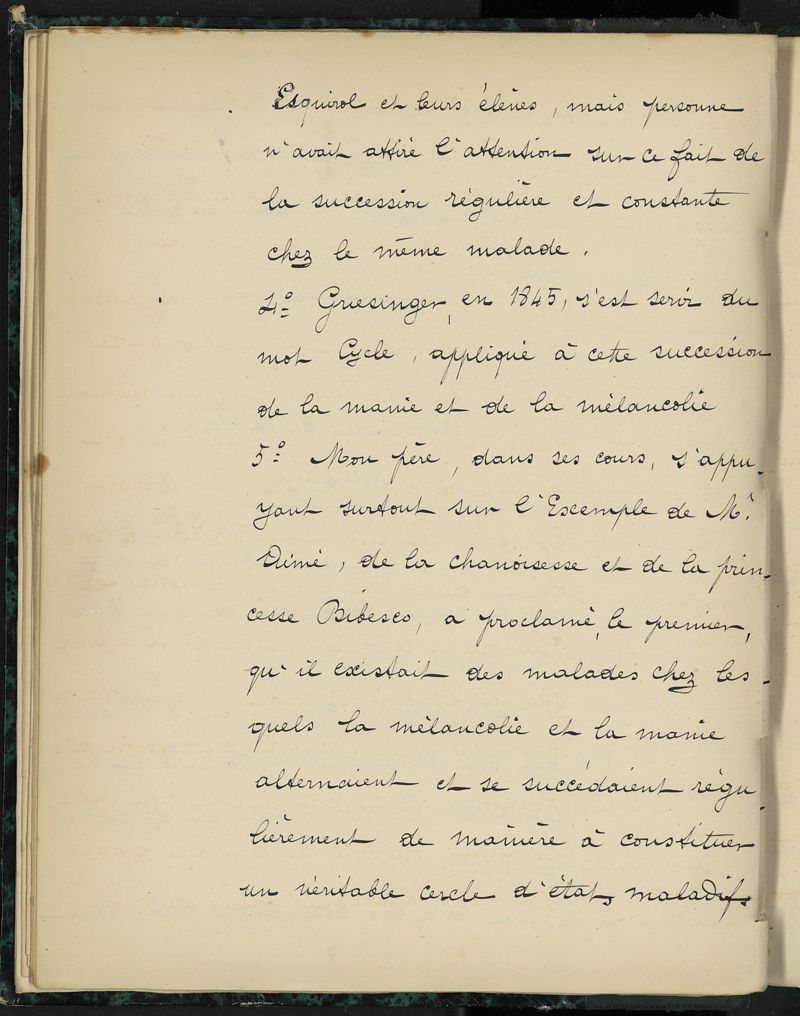 Esquirol et leurs élèves, mais personne
n'avait attiré l'attention sur ce fait de
la succession régulière et constante
chez le même malade.
4º Griesinger, en 1845, s'est servi du
mot Cycle, appliqué à cette succession
de la manie et de la mélancolie
5º Mon père, dans ses cours, s'appu-
yant surtout sur l'Exemple de Mr
Dimé, de la chanoisesse et de la prin-
cesse Bibesco, a proclamé, le premier,
qu'il existait des malades chez les-
quels la mélancolie et la manie
alternaient et se succédaient régu-
lièrement de manière à constituer
un véritable cercle d'états maladifs